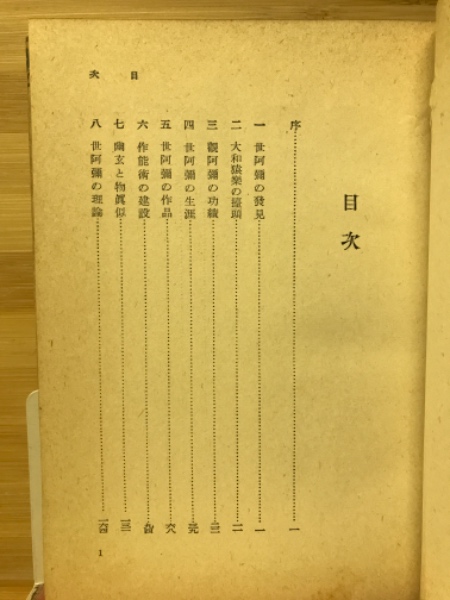 目次
目次
序 一
一 世阿彌の發見 一
二 大和猿樂の擡頭 一一
三 觀阿彌の功績
四 世阿彌の生涯
五 世阿彌の作品
六 作能術の建設
七 幽玄と物眞似
八 世阿彌の理論
1